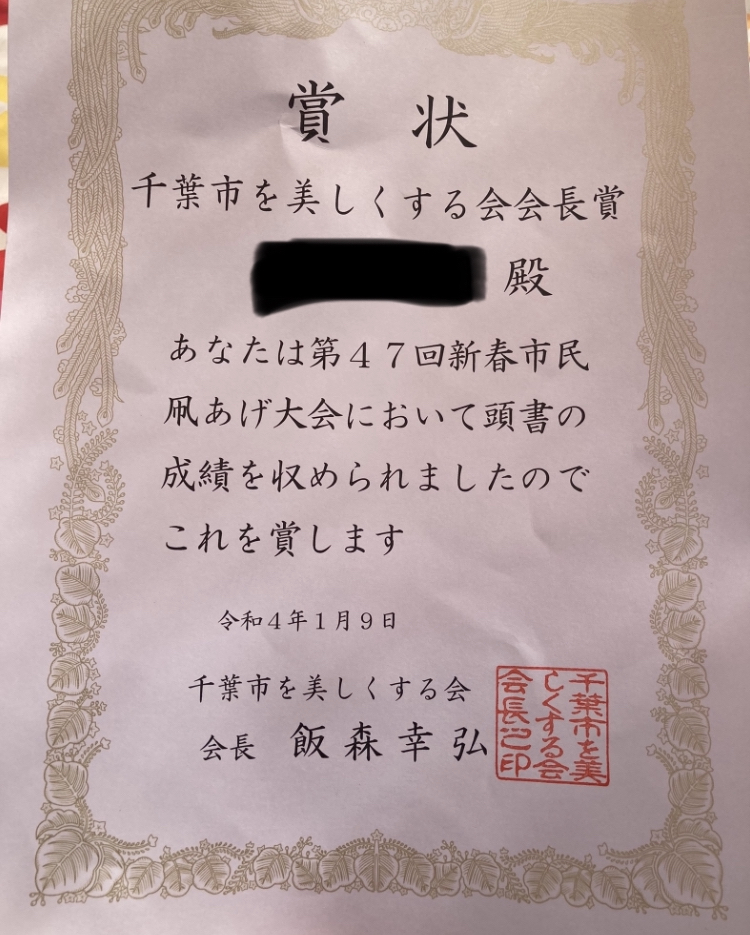 賞状
千葉市を美しくする会会長賞
殿
あなたは第４７回新春市民
凧あげ大会において頭書の
成績を収められましたので
これを賞します
令和４年１月９日
千葉市を美しくする会
会長 飯森幸弘
千葉市を美
しくする会
会長之印